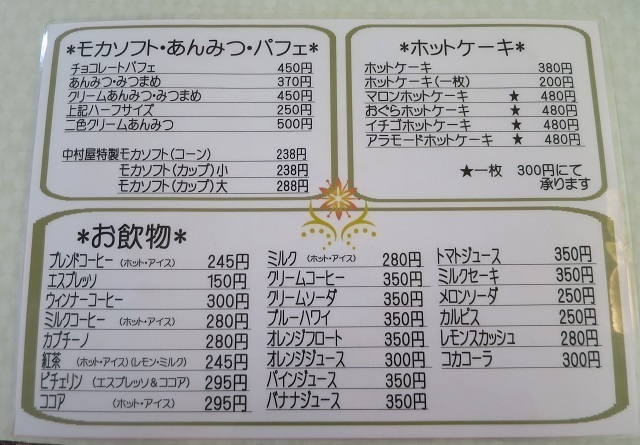 *モカソフト・あんみつ・パフェ*
チョコレートパフェ 450円
あんみつ・みつまめ 370円
クリームあんみつ・みつまめ 450円
上記ハーフサイズ 250円
二色クリームあんみつ 500円
中村屋特製モカソフト(コーン) 238円
モカソフト(カップ)小 238円
モカソフト(カップ)大 288円
*ホットケーキ*
ホットケーキ 380円
ホットケーキ(一枚) 200円
マロンホットケーキ ★ 480円
おぐらホットケーキ ★ 480円
イチゴホットケーキ ★ 480円
アラモードホットケーキ ★ 480円
★一枚 300円にて
承ります
*お飲物*
ブレンドコーヒー (ホット・アイス) 245円
エスプレッソ 150円
ウィンナーコーヒー 300円
ミルクコーヒー (ホット・アイス) 280円
カプチーノ 280円
紅茶 (ホット・アイス)(レモン・ミルク) 245円
ビチェリン (エスプレッソ&ココア) 295円
ココア (ホット・アイス) 295円
ミルク (ホット・アイス) 280円
クリームコーヒー 350円
クリームソーダ 350円
ブルーハワイ 350円
オレンジフロート 350円
オレンジジュース 300円
パインジュース 350円
バナナジュース 350円
トマトジュース 350円
ミルクセーキ 350円
メロンソーダ 250円
カルピス 250円
レモンスカッシュ 280円
コカコーラ 300円